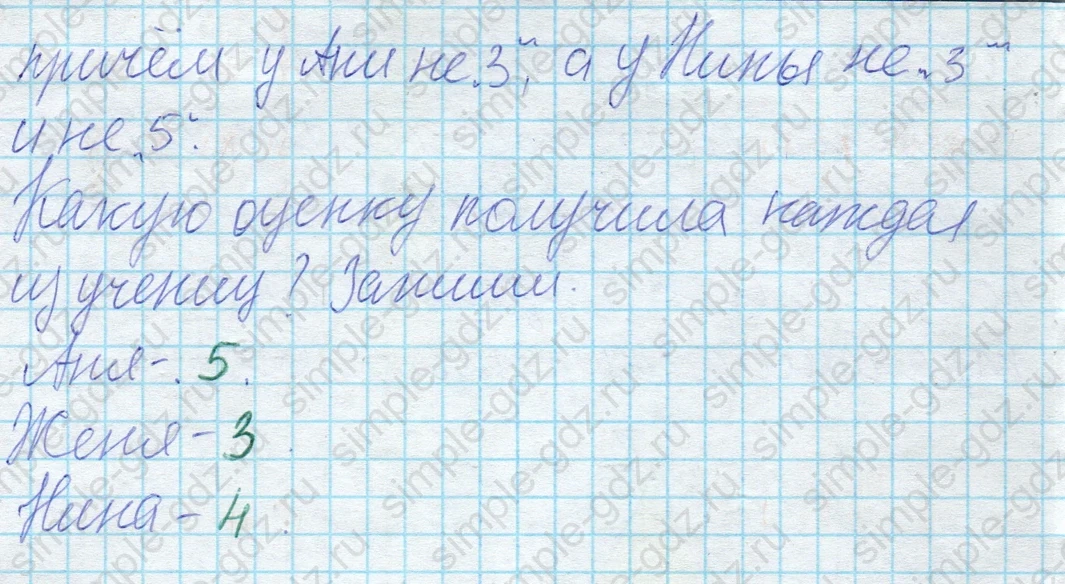 причём у Ани не „3“, а у Нины не „3“
и не „5“.
Какую оценку получила каждая
из учениц? Запиши.
Аня - 5.
Женя - 3
Нина - 4.